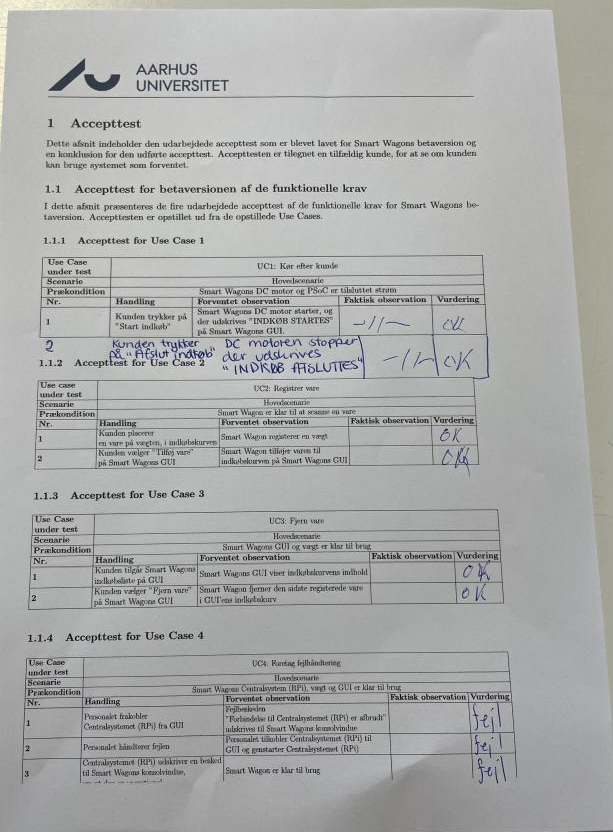 AARHUS
UNIVERSITET
1 Accepttest
Dette afsnit indeholder den udarbejdede accepttest som er blevet lavet for Smart Wagons betaversion og
en konklusion for den udførte accepttest. Accepttesten er tilegnet en tilfældig kunde, for at se om kunden
kan bruge systemet som forventet.
1.1 Accepttest for betaversionen af de funktionelle krav
I dette afsnit præsenteres de fire udarbejdede accepttest af de funktionelle krav for Smart Wagons be-
taversion. Accepttesten er opstillet ud fra de opstillede Use Cases.
1.1.1 Accepttest for Use Case 1
Use Case
under test UC1: Kør efter kunde
Scenarie Hovedscenarie
Prækondition Smart Wagons DC motor og PSoC er tilsluttet strøm
Nr. Handling Forventet observation Faktisk observation Vurdering
1 Kunden trykker på
"Start indkøb" Smart Wagons DC motor starter, og
der udskrives "INDKØB STARTES"
på Smart Wagons GUI. -//- OK
2 Kunden trykker
på "Afslut indkøb" DC motoren stopper
der udskrives
"INDKØB AFSLUTTES" -//- OK
1.1.2 Accepttest for Use Case 2
Use case
under test UC2: Registrer vare
Scenarie Hovedscenarie
Prækondition Smart Wagon er klar til at scanne en vare
Nr. Handling Forventet observation Faktisk observation Vurdering
1 Kunden placerer
en vare på vægten, i indkøbskurven Smart Wagon registerer en vægt OK
2 Kunden vælger "Tilføj vare"
på Smart Wagons GUI Smart Wagon tilføjer varen til
indkøbskurven på Smart Wagons GUI OK
1.1.3 Accepttest for Use Case 3
Use Case
under test UC3: Fjern vare
Scenarie Hovedscenarie
Prækondition Smart Wagons GUI og vægt er klar til brug
Nr. Handling Forventet observation Faktisk observation Vurdering
1 Kunden tilgår Smart Wagons
indkøbsliste på GUI Smart Wagons GUI viser indkøbskurvens indhold OK
2 Kunden vælger "Fjern vare"
på Smart Wagons GUI Smart Wagon fjerner den sidste registerede vare
i GUI'ens indkøbskurv OK
1.1.4 Accepttest for Use Case 4
Use Case
under test UC4: Foretag fejlhåndtering
Scenarie Hovedscenarie
Prækondition Smart Wagons Centralsystem (RPi), vægt og GUI er klar til brug
Nr. Handling Forventet observation Faktisk observation Vurdering
1 Personalet frakobler
Centralsystemet (RPi) fra GUI Fejlbeskeden
"Forbindelse til Centralsystemet (RPi) er afbrudt"
udskrives til Smart Wagons konsolvindue fejl
2 Personalet håndterer fejlen Personalet tilkobler Centralsystemet (RPi) til
GUI og genstarter Centralsystemet (RPi) fejl
3 Centralsystemet (RPi) udskriver en besked
til Smart Wagons konsolvindue, Smart Wagon er klar til brug fejl